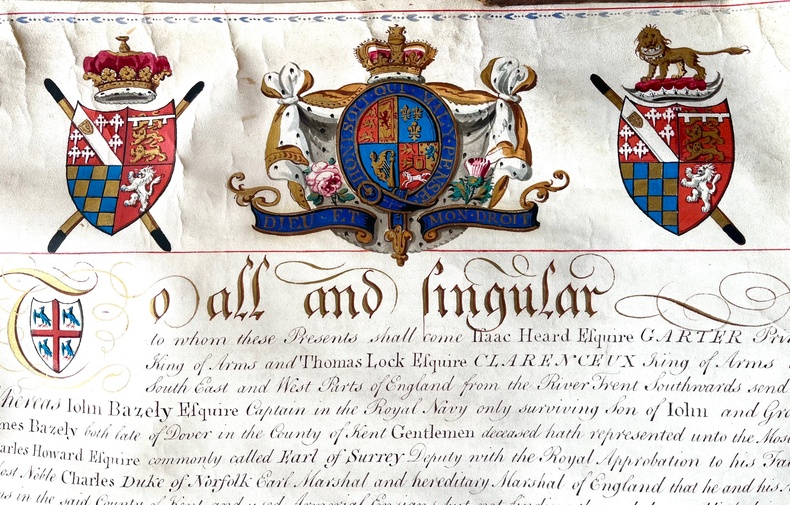 HONI SOIT QUI MAL Y PENSE
DIEU ET MON DROIT
To all and singular
to whom these Presents shall come Isaac Heard Esquire GARTER Prin
King of Arms and Thomas Lock Esquire CLARENCEUX King of Arms
South East and West Parts of England from the River Trent Southwards send
Whereas Iohn Bazely Esquire Captain in the Royal Navy only surviving Son of Iohn and Gr
mes Bazely both late of Dover in the County of Kent Gentlemen deceased hath represented unto the Mos
arles Howard Esquire commonly called Earl of Surrey Deputy with the Royal Approbation to his Fa
ost Noble Charles Duke of Norfolk Earl Marshal and hereditary Marshal of England that he and his
in the said County of Kent and used Armorial Ensigns but not